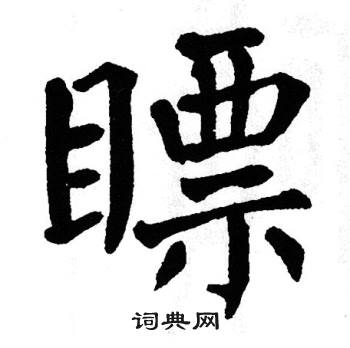 瞟
词典网